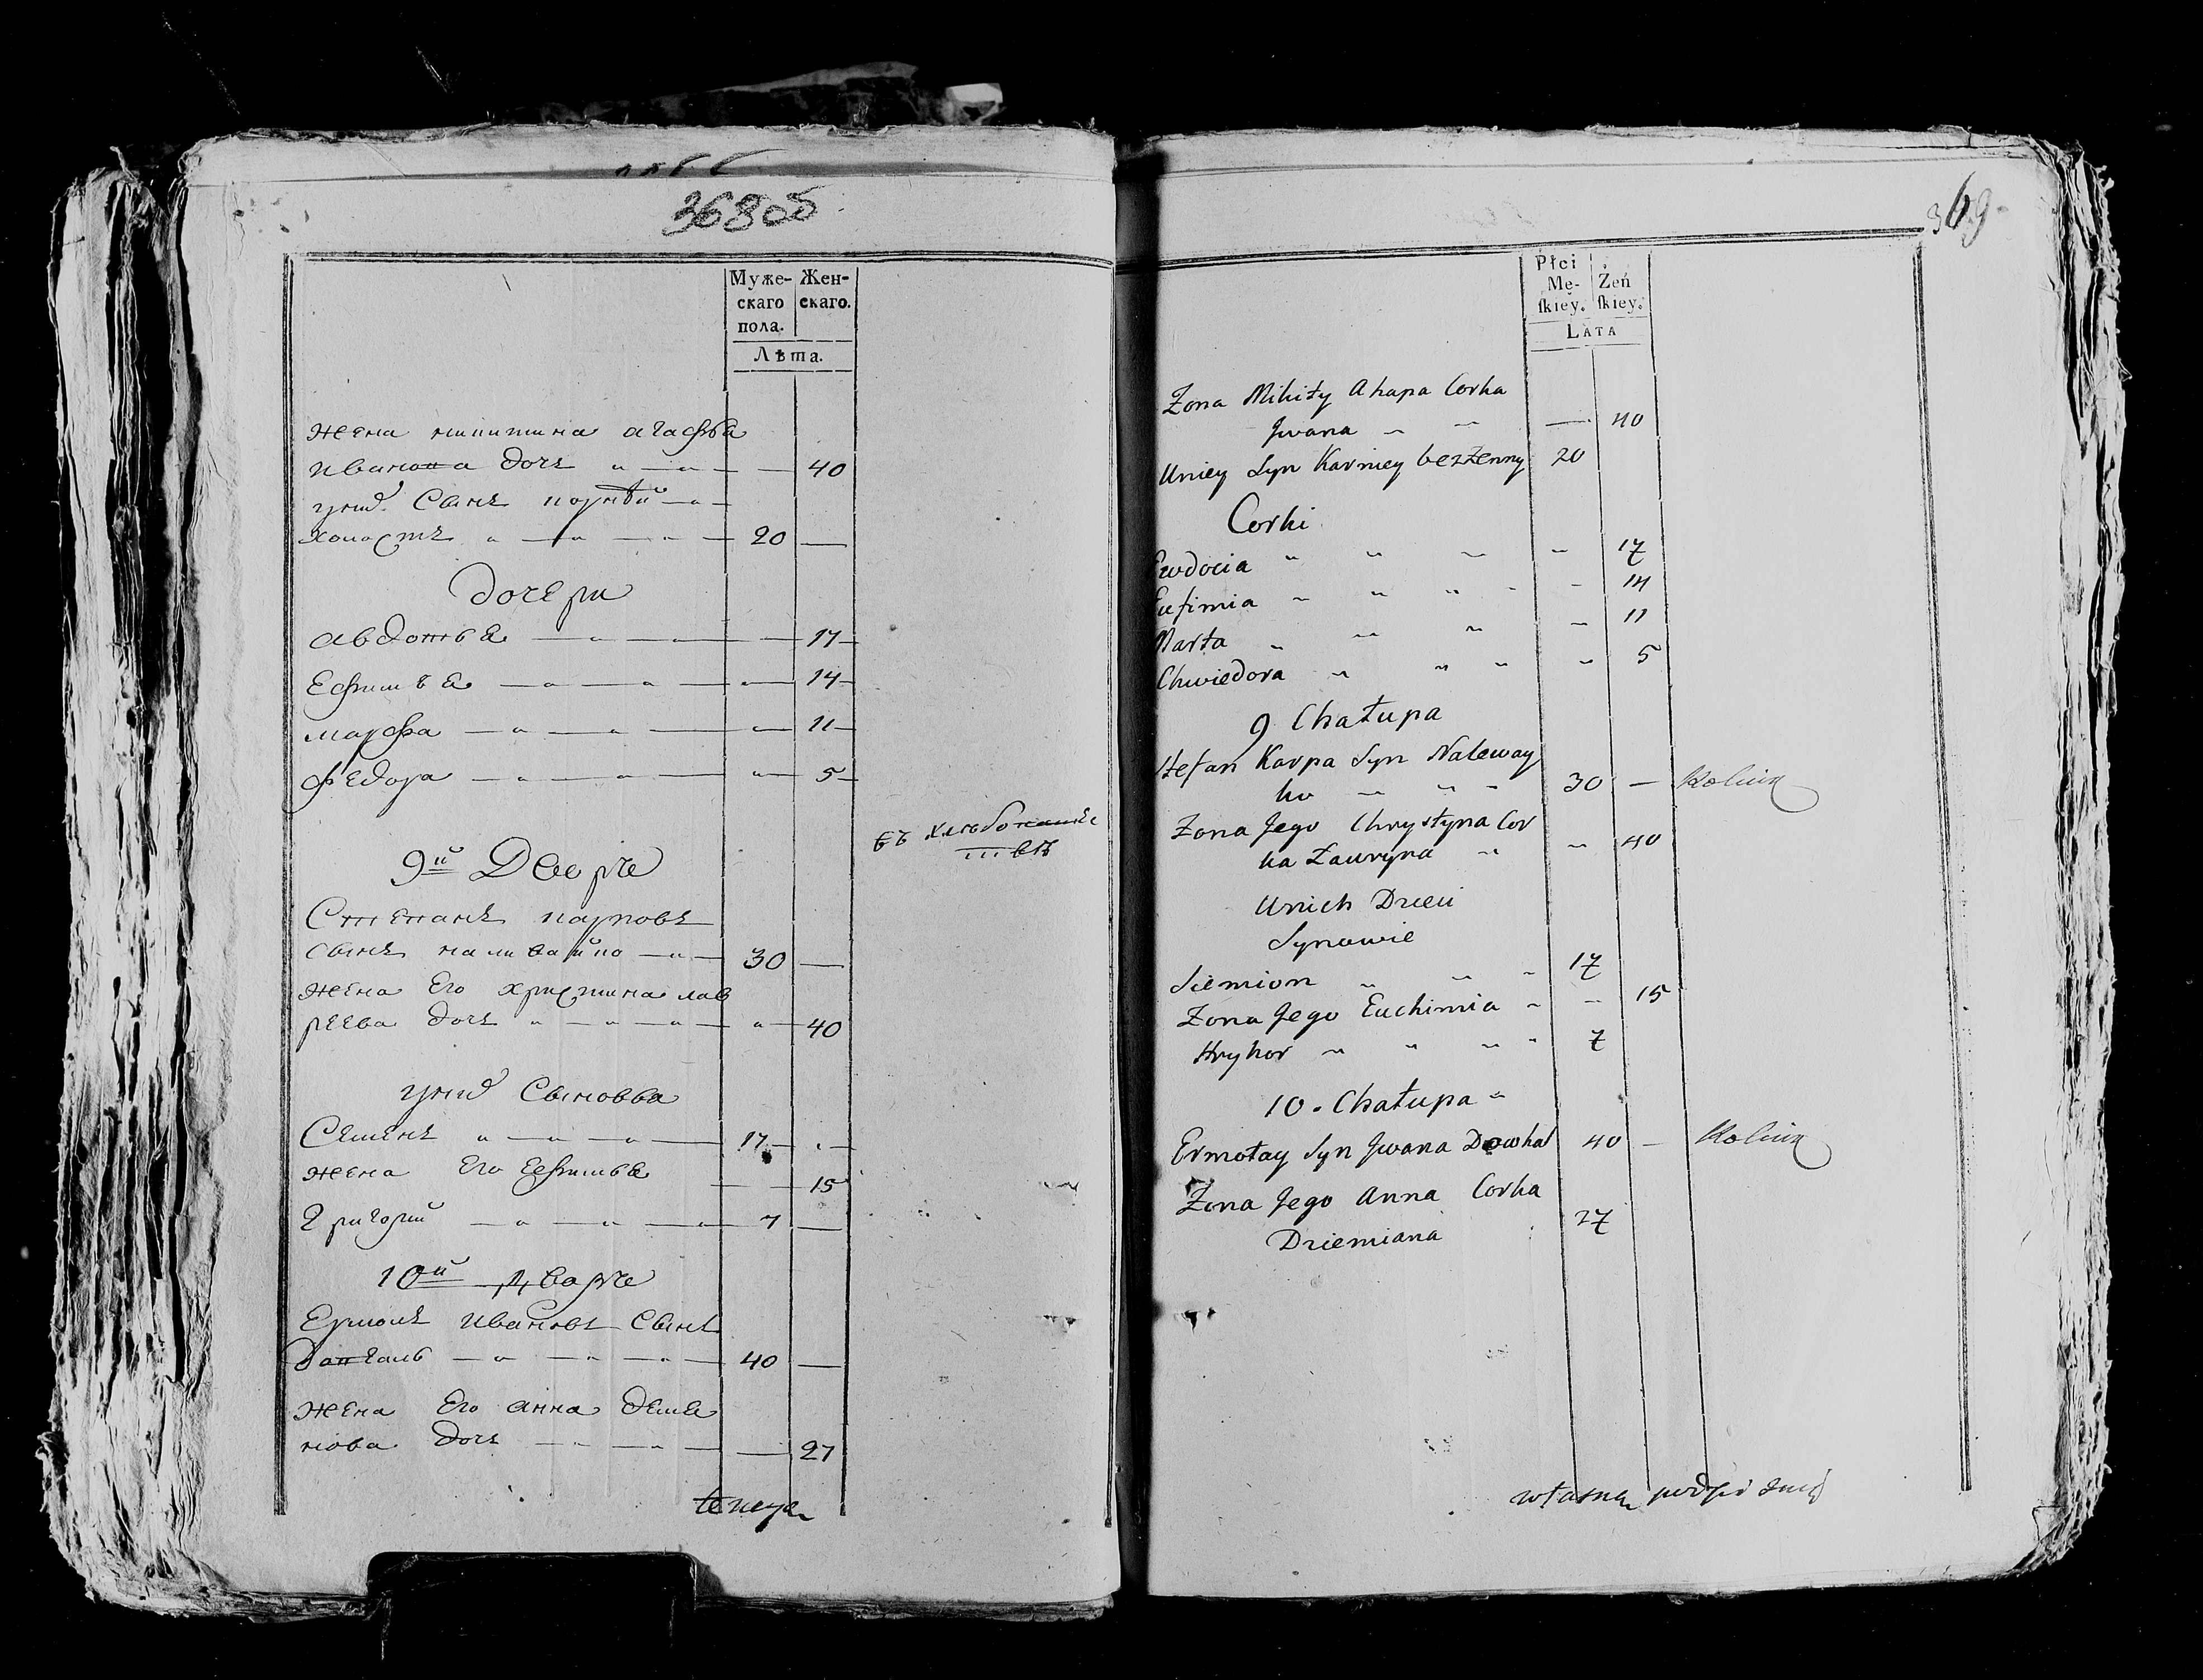 368об
Муже-
скаго
пола.
Жен-
скаго.
Лѣта.
жена никитина агафья
Иванова дочь 40
у нид сынъ корнѣй
холостъ 20
дочери
авдотья 17
Ефимья 14
марфа 11
федора 5
9й Дворъ
въ хлѣбопашествѣ
Степанъ карповъ
сынъ наливайко 30
жена его христина лав
реева дочь 40
у нид сыновья
Семенъ 17
жена его Ефимья 15
Григорий 7
10й дворъ
Ермолъ Ивановъ сынъ
довгаль 40
жена его анна демя
нова дочь 27
369
Płci
Mę-
ſkiey.
Żeń
ſkiey.
LATA
Zona Mikity Ahapa Corka
Jwana 40
Uniey Syn Karniey bezżenny 20
Corki
Ewdocia 17
Eufimia 14
Marta 11
Chwiedora 5
9 Chałupa
Stefan Karpa Syn Naleway
ko 30 — Rolnik
Zona Jego Chrystyna Cor
ka Ławryna 40
Unich Dzieci
Synowie
Siemion 17
Zona Jego Euchimia 15
Hryhor 7
10. Chałupa
Ermołay Syn Jwana Dowhal 40 — Rolnik
Zona Jego Anna Corka
Dziemiana 27
własną